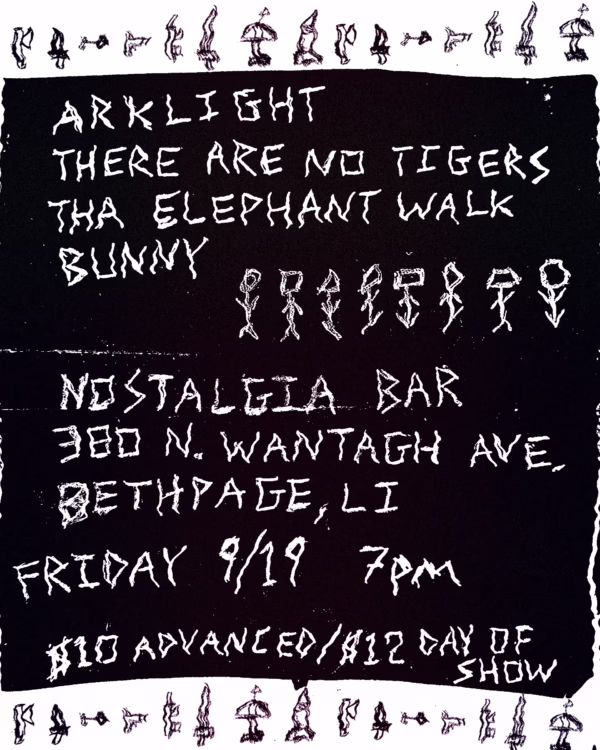 ARKLIGHT
THERE ARE NO TIGERS
THA ELEPHANT WALK
BUNNY
NOSTALGIA BAR
380 N. WANTAGH AVE.
BETHPAGE, LI
FRIDAY 9/19 7pm
$10 ADVANCED/$12 DAY OF
SHOW